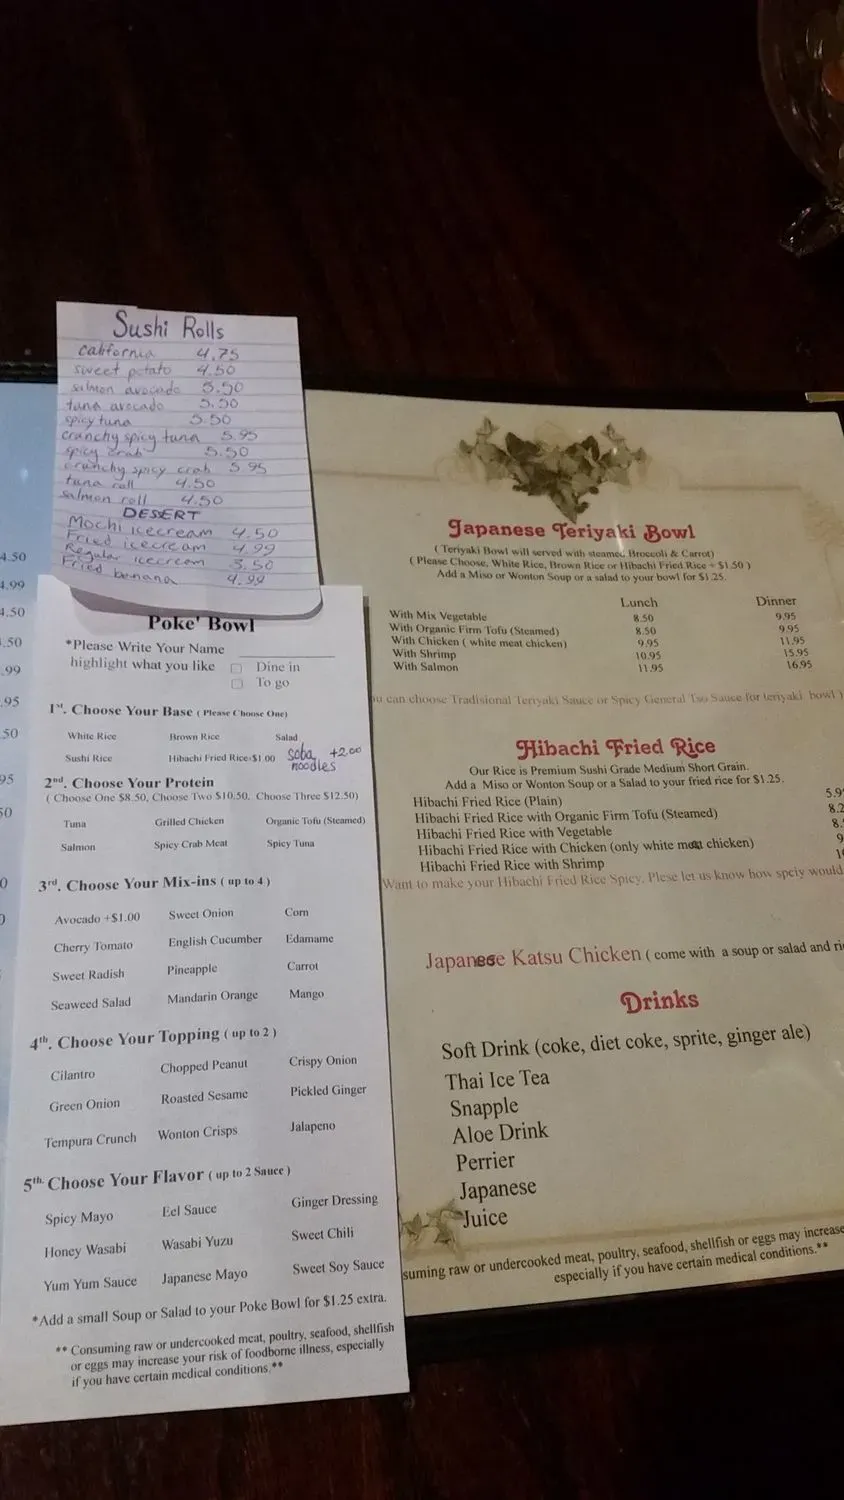 Sushi Rolls
california 4.75
sweet potato 4.50
salmon avocado 5.50
tuna avocado 5.50
spicy tuna 5.50
crunchy spicy tuna 5.95
spicy crab 5.50
crunchy spicy crab 5.95
tuna roll 4.50
salmon roll 4.50
DESERT
Mochi icecream 4.50
Fried icecream 4.99
Regular icecream 3.50
Fried banana 4.99
4.50
4.99
4.50
.50
.99
.95
50
95
50
0
Poke' Bowl
*Please Write Your Name
highlight what you like Dine in
To go
1st. Choose Your Base ( Please Choose One)
White Rice Brown Rice Salad
Sushi Rice Hibachi Fried Rice+$1.00 soba noodles +2.00
2nd. Choose Your Protein
( Choose One $8.50, Choose Two $10.50, Choose Three $12.50)
Tuna Grilled Chicken Organic Tofu (Steamed)
Salmon Spicy Crab Meat Spicy Tuna
3rd. Choose Your Mix-ins ( up to 4 )
Avocado +$1.00 Sweet Onion Corn
Cherry Tomato English Cucumber Edamame
Sweet Radish Pineapple Carrot
Seaweed Salad Mandarin Orange Mango
4th. Choose Your Topping ( up to 2 )
Cilantro Chopped Peanut Crispy Onion
Green Onion Roasted Sesame Pickled Ginger
Tempura Crunch Wonton Crisps Jalapeno
5th. Choose Your Flavor ( up to 2 Sauce )
Spicy Mayo Eel Sauce Ginger Dressing
Honey Wasabi Wasabi Yuzu Sweet Chili
Yum Yum Sauce Japanese Mayo Sweet Soy Sauce
*Add a small Soup or Salad to your Poke Bowl for $1.25 extra.
** Consuming raw or undercooked meat, poultry, seafood, shellfish
or eggs may increase your risk of foodborne illness, especially
if you have certain medical conditions.**
Japanese Teriyaki Bowl
( Teriyaki Bowl will served with steamed Broccoli & Carrot)
( Please Choose, White Rice, Brown Rice or Hibachi Fried Rice + $1.50 )
Add a Miso or Wonton Soup or a salad to your bowl for $1.25.
Lunch Dinner
With Mix Vegetable 8.50 9.95
With Organic Firm Tofu (Steamed) 8.50 9.95
With Chicken ( white meat chicken) 9.95 11.95
With Shrimp 10.95 15.95
With Salmon 11.95 16.95
u can choose Tradisional Teriyaki Sauce or Spicy General Tso Sauce for teriyaki bowl )
Hibachi Fried Rice
Our Rice is Premium Sushi Grade Medium Short Grain.
Add a Miso or Wonton Soup or a Salad to your fried rice for $1.25.
Hibachi Fried Rice (Plain) 5.9
Hibachi Fried Rice with Organic Firm Tofu (Steamed) 8.2
Hibachi Fried Rice with Vegetable 8.
Hibachi Fried Rice with Chicken (only white meat chicken) 9
Hibachi Fried Rice with Shrimp 1
Want to make your Hibachi Fried Rice Spicy, Plese let us know how speiy would
Japanese Katsu Chicken ( come with a soup or salad and ri
Drinks
Soft Drink (coke, diet coke, sprite, ginger ale)
Thai Ice Tea
Snapple
Aloe Drink
Perrier
Japanese
Juice
suming raw or undercooked meat, poultry, seafood, shellfish or eggs may increase
especially if you have certain medical conditions.**